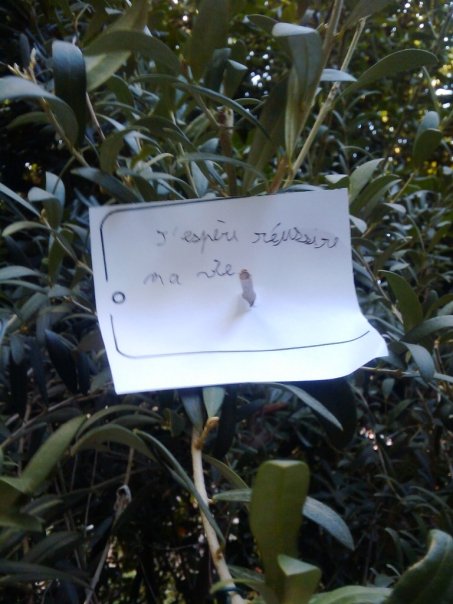 J'espère réussire
ma vie